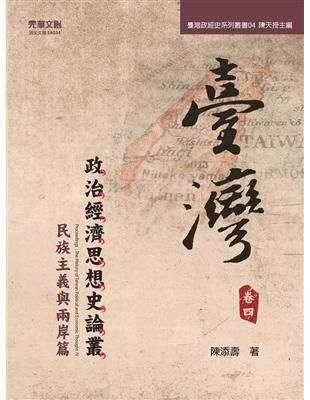 元華文創
臺灣政經史系列叢書04 陳天授主編
臺灣
卷四
政治經濟思想史論叢
Proceedings : The History of Taiwan Political and Economic Thought IV
民族主義與兩岸篇
陳添壽 著